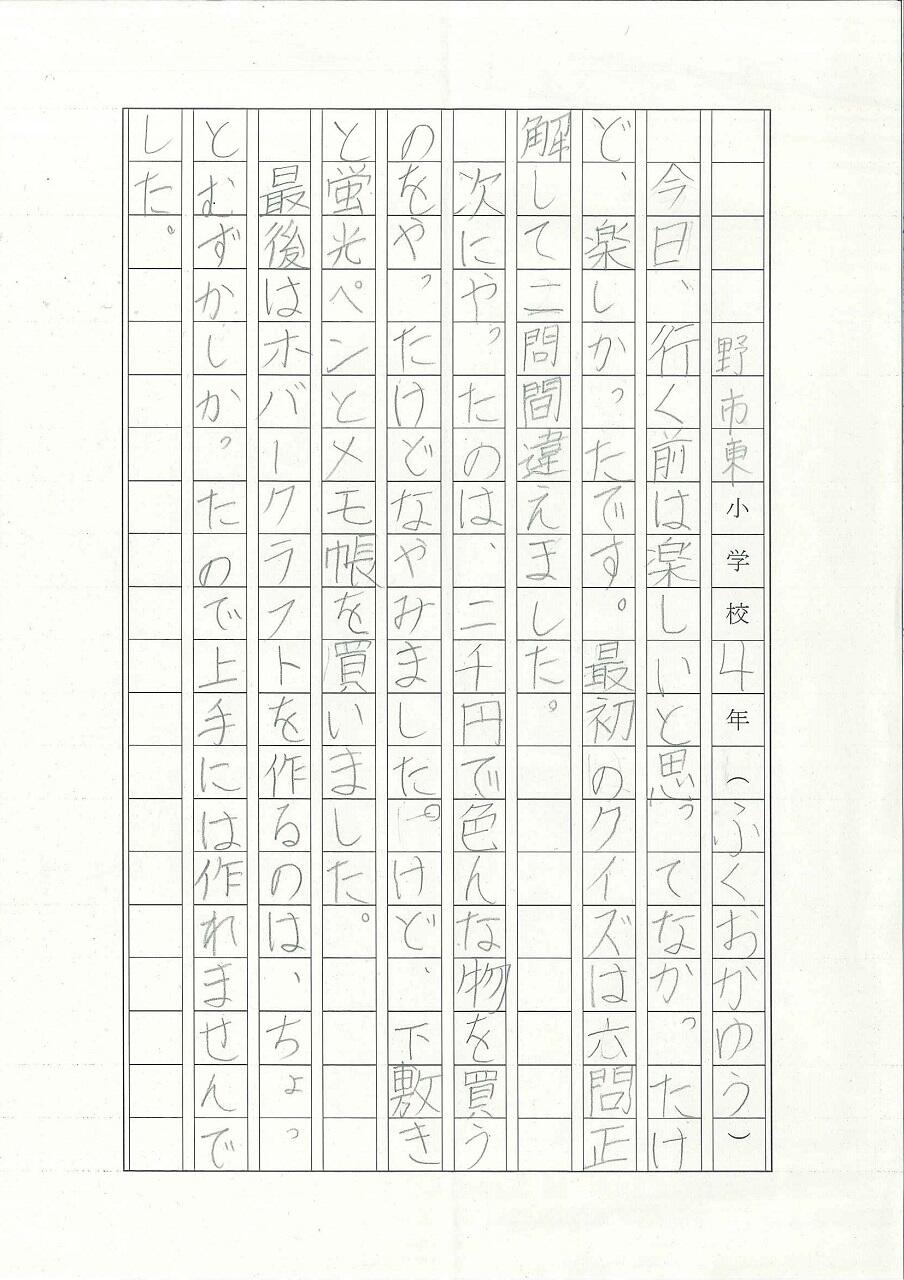 野市東小学校4年(ふくおかゆう)
今日、行く前は楽しいと思ってなかったけ
ど、楽しかったです。最初のクイズは六問正
解して二問間違えました。
次にやったのは、二千円で色んな物を買う
のをやったけどなやみました。けど、下敷き
と蛍光ペンとメモ帳を買いました。
最後はホバークラフトを作るのは、ちょっ
とむずかしかったので上手には作れませんで
した。